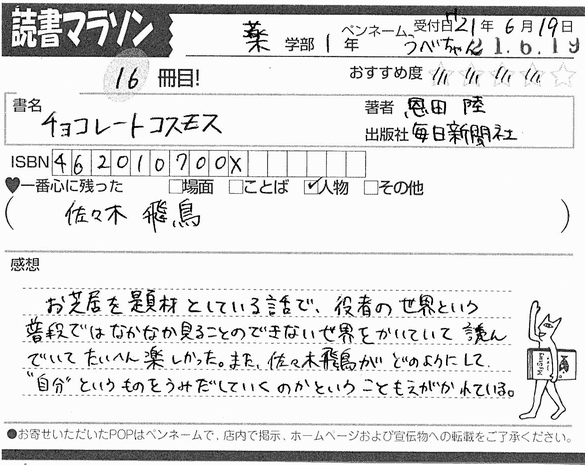 読書マラソン
薬 学部 1 年 ペンネーム うべちゃん 受付日 21年 6月 19日
21.6.19
16 冊目! おすすめ度
書名
チョコレートコスモス
著者 恩田 陸
出版社 毎日新聞社
ISBN 462010700X
♥一番心に残った □場面 □ことば ☑人物 □その他
( 佐々木 飛鳥 )
感想
お芝居を題材としている話で、役者の世界という
普段ではなかなか見ることのできない世界をかいていて 読ん
でいて たいへん 楽しかった。また、佐々木飛鳥が どのようにして
"自分"というものをうみだしていくのかということもえがかれている。
●お寄せいただいたPOPはペンネームで、店内で掲示、ホームページおよび宣伝物への転載をご了承ください。